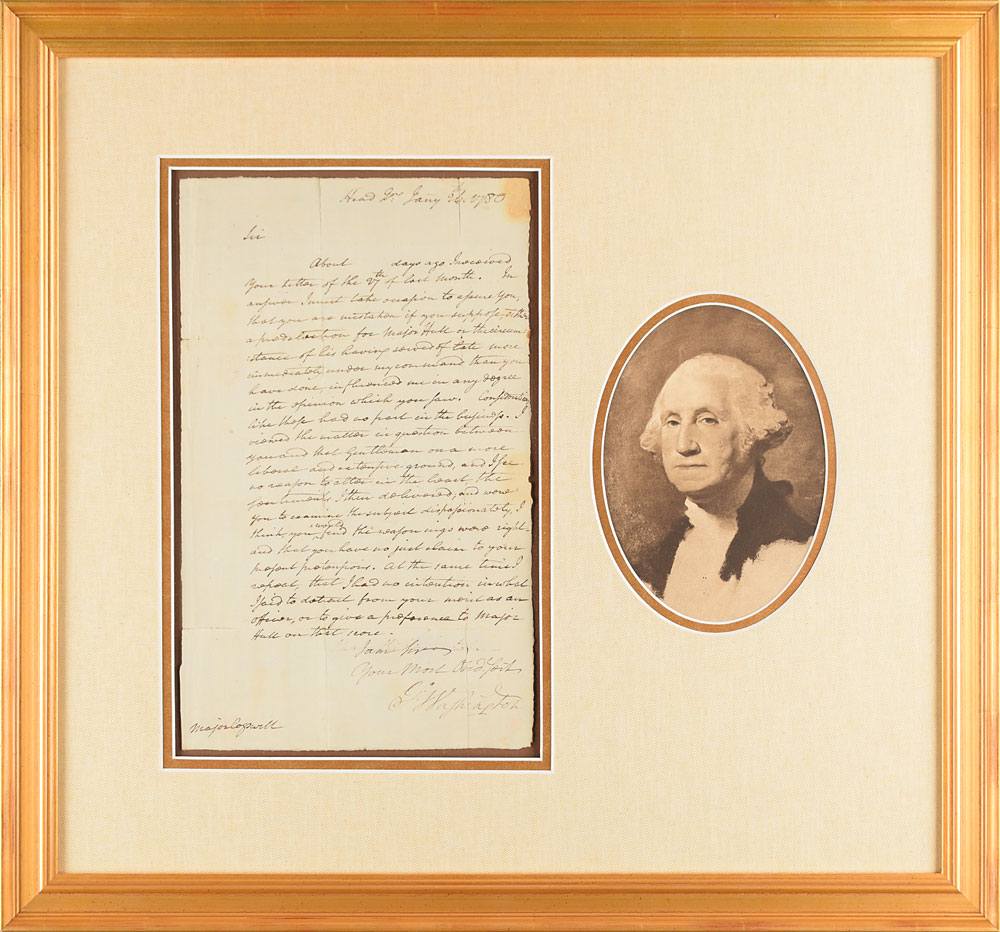 Head Qrs Jany 1780
Sir
About days ago I received
Your Letter of the 27th of last month. In
answer I must take occasion to assure you,
that you are mistaken if you suppose either
a predelection for Major Hull or the circum
stance of his having served of late more
immediately under my command than you
have done, influenced me in any degree
in the opinion which you saw. Considerations
like those had no part in the business. I
viewed the matter in question between
you and that Gentleman on a more
liberal and extensive ground, and I see
no reason to alter in the least the
sentiments I then delivered; and were
You to examine the subject dispassionately, I
think, you would find the reasonings were right
and that you have no just claim to your
present pretensions. At the same time I
repeat, that I had no intention in what
I said to detract from your merit as an
officer, or to give a preference to Major
Hull on that score.
I am Sir
Your Most Obed Servt
Go Washington
Major Cogswell